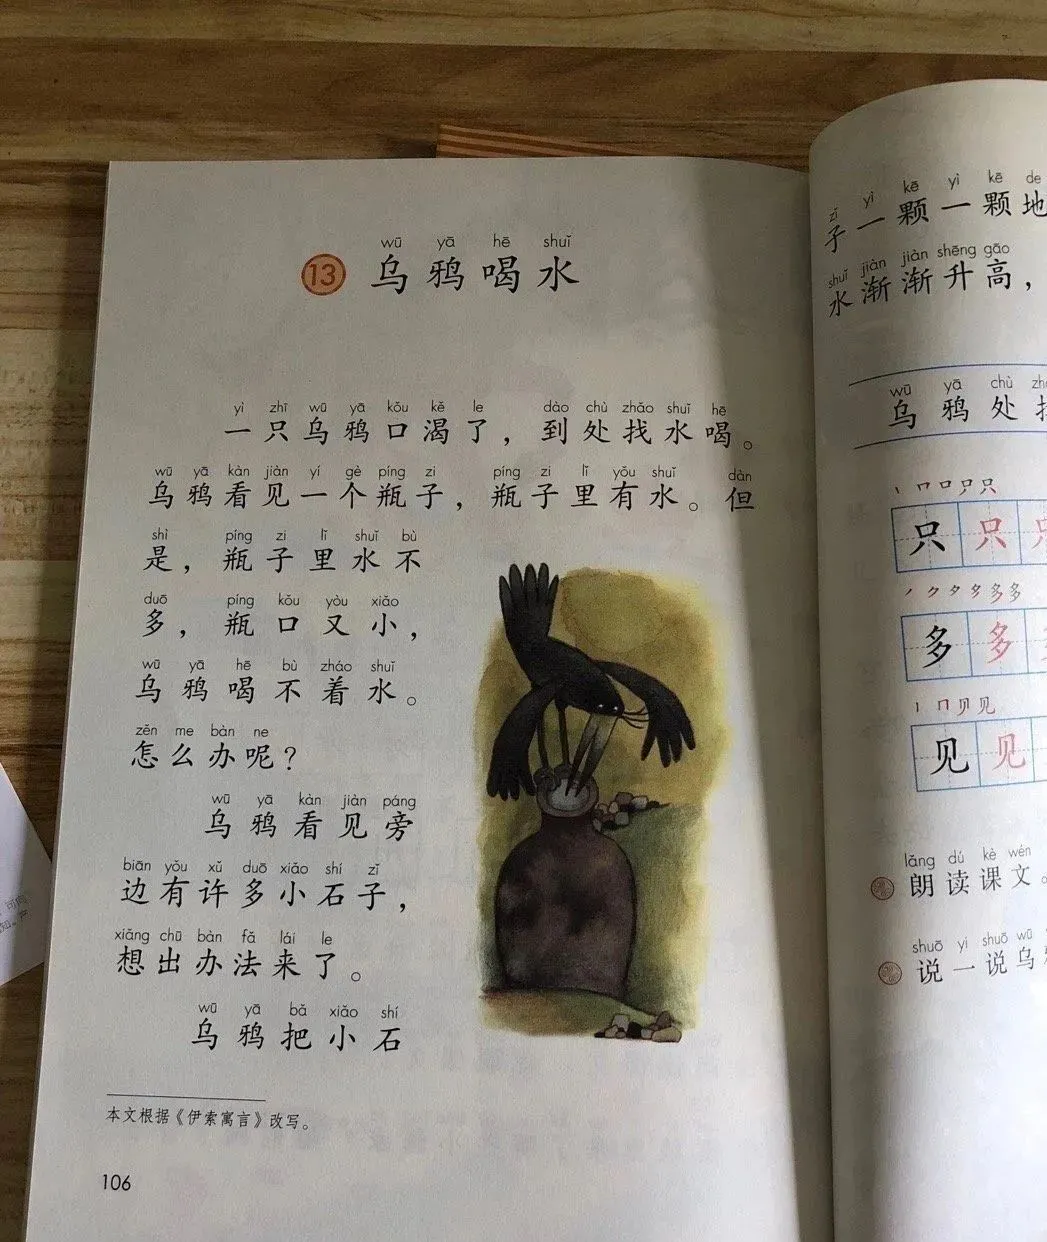 wū yā hē shuǐ
13 乌鸦喝水
yì zhī wū yā kǒu kě le dào chù zhǎo shuǐ hē
一只乌鸦口渴了，到处找水喝。
wū yā kàn jiàn yí gè píng zi píng zi lǐ yǒu shuǐ dàn
乌鸦看见一个瓶子，瓶子里有水。但
shì píng zi lǐ shuǐ bù
是，瓶子里水不
duō píng kǒu yòu xiǎo
多，瓶口又小，
wū yā hē bù zháo shuǐ
乌鸦喝不着水。
zěn me bàn ne
怎么办呢？
wū yā kàn jiàn páng
乌鸦看见旁
biān yǒu xǔ duō xiǎo shí zǐ
边有许多小石子，
xiǎng chū bàn fǎ lái le
想出办法来了。
wū yā bǎ xiǎo shí
乌鸦把小石
本文根据《伊索寓言》改写。
106
zǐ yì kē yì kē de
子一颗一颗地
shuǐ jiàn jiàn shēng gāo
水渐渐升高，
wū yā chù
乌鸦处
只只
多多
见见
lǎng dú kè wén
朗读课文。
shuō yi shuō wū
说一说乌